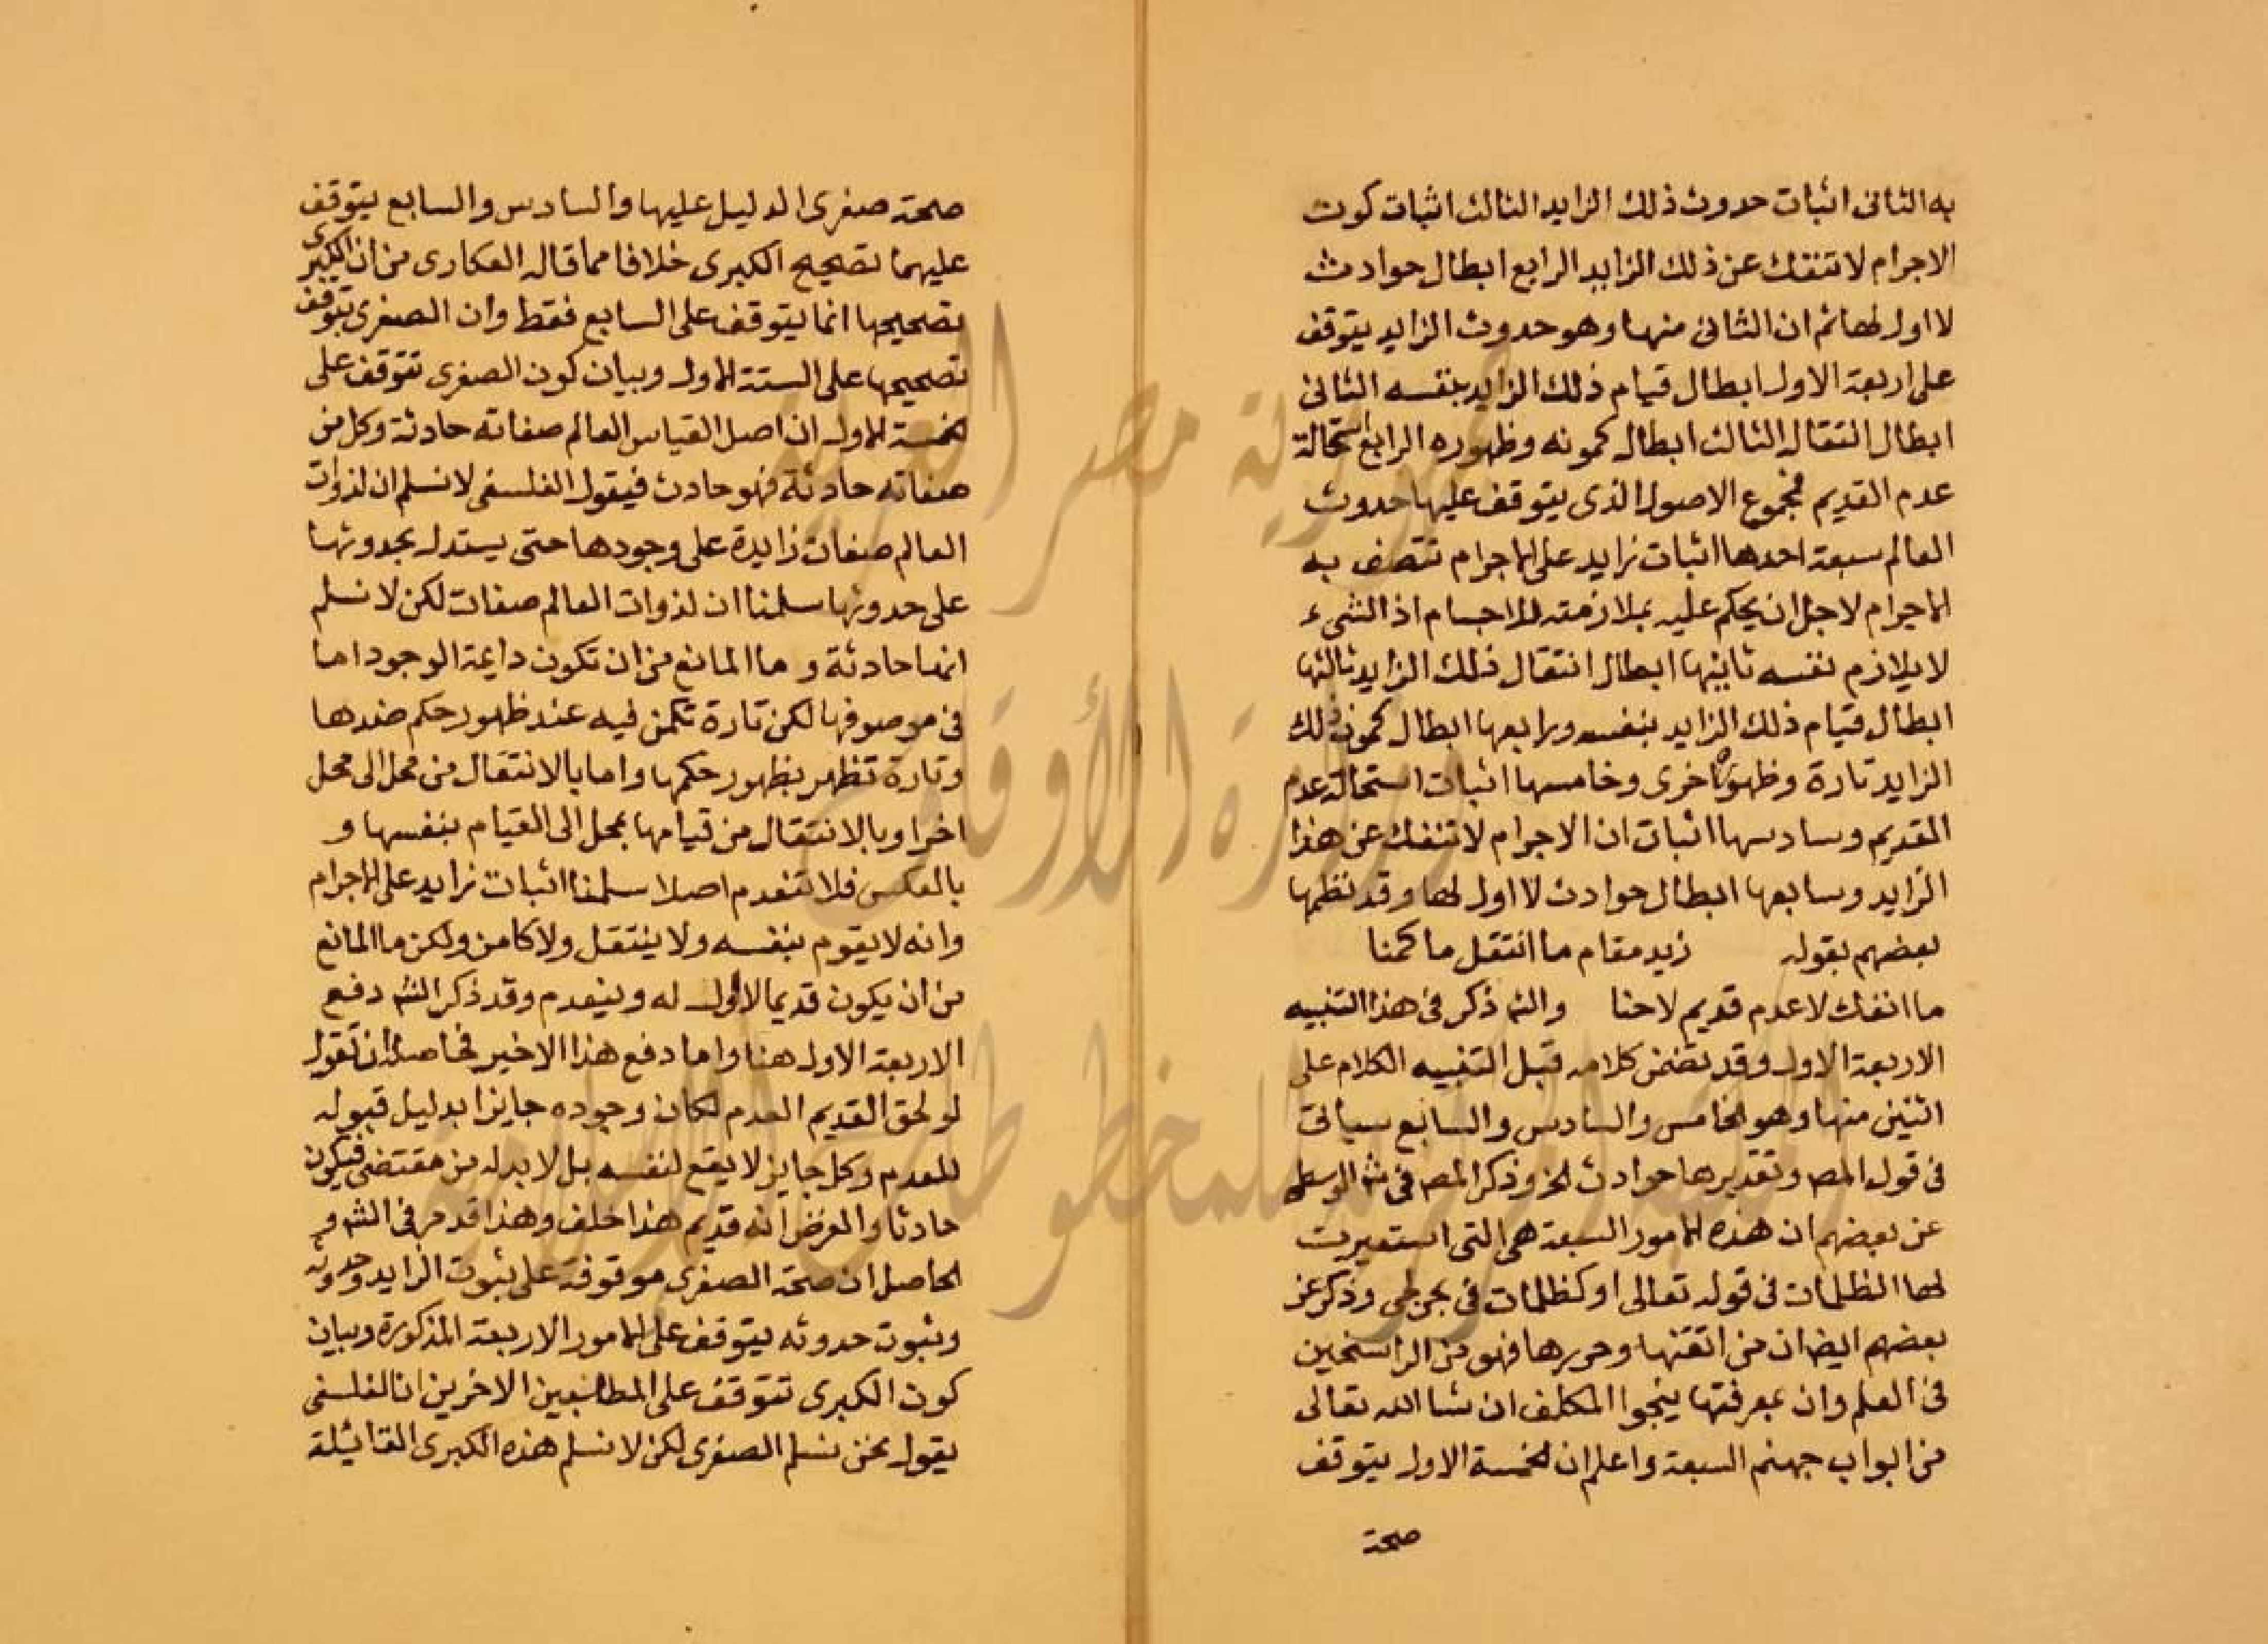 به الثانى اثبات حدوث ذلك الزايد الثالث اثبات كون
الاجرام لا تنفك عن ذلك الزايد الرابع ابطال حوادث
لا اول لها ثم ان الثانى منها وهو حدوث الزايد يتوقف
على اربعة الاول ابطال قيام ذلك الزايد بنفسه الثانى
ابطال انتقاله الثالث ابطال كمونه وظهوره الرابع استحالة
عدم القديم فمجموع الاصول الذى يتوقف عليها حدوث
العالم سبعة احدها اثبات زايد على الاجرام تتصف به
الاجرام لاجل ان يحكم عليه بملازمته للاجسام اذ الشىء
لا يلازم نفسه ثانيها ابطال انتقال ذلك الزايد ثالثها
ابطال قيام ذلك الزايد بنفسه ورابعها ابطال كمون ذلك
الزايد تارة وظهوره اخرى وخامسها اثبات استحالة عدم
القديم وسادسها اثبات ان الاجرام لا تنفك عن هذا
الزايد وسابعها ابطال حوادث لا اول لها وقد نظمها
بعضهم بقوله زيد مقام ما انتقل ما كمنا
ما انفك لا عدم قديم لاحنا والش ذكر فى هذا التنبيه
الاربعة الاول وقد تضمن كلامه قبل التنبيه الكلام على
اثنين منها وهو الخامس والسادس والسابع سياتى
فى قول المص وتقديرها حوادث الخ وذكر المص فى ش الوسطى
عن بعضهم ان هذه الامور السبعة هى التى استعيرت
لها الظلمات فى قوله تعالى او كظلمات فى بحر لجى وذكر عن
بعضهم ايضا ان من اتقنها وحررها فهو من الراسخين
فى العلم وان بمعرفتها ينجوا المكلف ان شا الله تعالى
من ابواب جهنم السبعة واعلم ان الخمسة الاول يتوقف
صحة
صحة صغرى الدليل عليها والسادس والسابع يتوقف
عليهما تصحيح الكبرى خلافا مما قاله العكارى من ان الكبرى
تصحيحها انما يتوقف على السابع فقط وان الصغرى يتوقف
تصحيحها على الستة الاول وبيان كون الصغرى تتوقف على
الخمسة الاول ان اصل القياس العالم صفاته حادثة وكل من
صفاته حادثة فهو حادث فيقول الفلسفى لا نسلم ان لذوات
العالم صفات زايدة على وجودها حتى يستدل بحدوثها
على حدوثها سلمنا ان لذوات العالم صفات لكن لا نسلم
انها حادثة وما المانع من ان تكون دايمة الوجود اما
فى موصوفها لكن تارة تكمن فيه عند ظهور حكم ضدها
وتارة تظهر بظهور حكمها واما بالانتقال من محل الى محل
اخر او بالانتقال من قيامها بمحل الى القيام بنفسها و
بالعكس فلا تنعدم اصلا سلمنا اثبات زايد على الاجرام
وانه لا يقوم بنفسه ولا ينتقل ولا كامن ولكن ما المانع
من ان يكون قديما لا اول له وينعدم وقد ذكر الش دفع
الاربعة الاول هنا واما دفع هذا الاخير فحاصله ان تقول
لو لحق القديم العدم لكان وجوده جايزا بدليل قبوله
للعدم وكل جايز لا يقع لنفسه بل لا بد له من مقتضى فيكون
حادثا والفرض انه قديم هذا خلف وهذا قد مر فى الش و
الحاصل ان صحة الصغرى موقوفة على ثبوت الزايد وحدوثه
وثبوت حدوثه يتوقف على الامور الاربعة المذكورة وبيان
كون الكبرى تتوقف على المطلبين الاخرين ان الفلسفى
يقول نحن نسلم الصغرى لكن لا نسلم هذه الكبرى القائلة